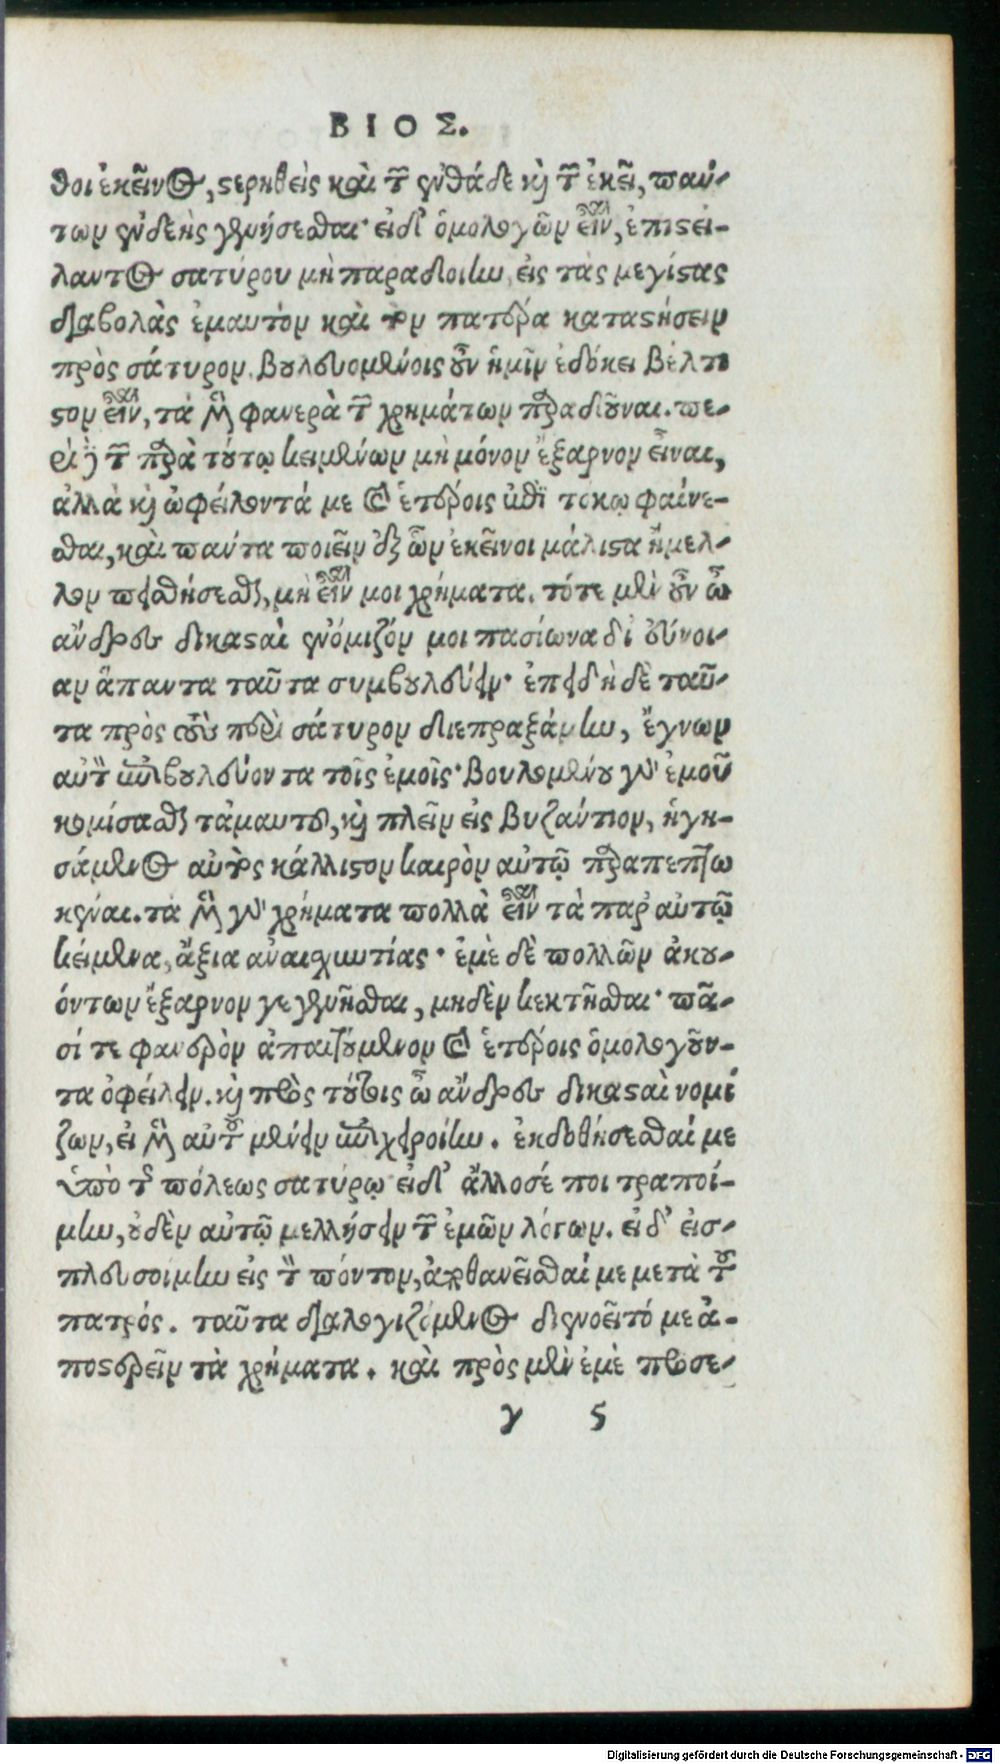 ΒΙΟΣ.
θοι ἐκεῖνος, στερηθεὶς καὶ τῶν ἐνθάδε καὶ τῶν ἐκεῖ, πάν-
των ἐνδεὴς γενήσεσθαι· εἰ δ' ὁμολογῶν εἶναι, ἐπιστεί-
λαντος σατύρου μὴ παραδοίην, εἰς τὰς μεγίστας
διαβολὰς ἐμαυτὸν καὶ τὸν πατέρα καταστήσειν
πρὸς σάτυρον. βουλευομένοις οὖν ἡμῖν ἐδόκει βέλτι
στον εἶναι, τὰ μὲν φανερὰ τῶν χρημάτων παραδοῦναι. πε-
ρὶ δὲ τῶν παρὰ τούτῳ κειμένων μὴ μόνον ἔξαρνον εἶναι,
ἀλλὰ καὶ ὀφείλοντά με καὶ ἑτέροις ἐπὶ τόκῳ φαίνε-
σθαι, καὶ πάντα ποιεῖν ἐξ ὧν ἐκεῖνοι μάλιστα ἤμελ-
λον πεισθήσεσθαι, μὴ εἶναι μοι χρήματα. τότε μὲν οὖν ὦ
ἄνδρες δικασταὶ ἐνόμιζόν μοι πασίωνα δι' εὔνοι-
αν ἅπαντα ταῦτα συμβουλεύειν· ἐπειδὴ δὲ ταῦ-
τα πρὸς τοὺς περὶ σάτυρον διεπραξάμην, ἔγνων
αὐτὸν ἐπιβουλεύοντα τοῖς ἐμοῖς· βουλομένου γὰρ ἐμοῦ
κομίσασθαι τἀμαυτοῦ, καὶ πλεῖν εἰς βυζάντιον, ἡγη-
σάμενος αὐτὸς κάλλιστον καιρὸν αὐτῷ παραπεπτω
κέναι. τὰ μὲν γὰρ χρήματα πολλὰ εἶναι τὰ παρ' αὐτῷ
κείμενα, ἄξια ἀναισχυντίας· ἐμὲ δὲ πολλῶν ἀκου-
όντων ἔξαρνον γεγενῆσθαι, μηδὲν κεκτῆσθαι· πᾶ-
σί τε φανερὸν ἀπαιτούμενον καὶ ἑτέροις ὁμολογοῦν-
τα ὀφείλειν. καὶ πρὸς τούτοις ὦ ἄνδρες δικασταὶ νομί
ζων, εἰ μὲν αὐτοῦ μένειν ἐπιχειροίην. ἐκδοθήσεσθαί με
ὑπὸ τῆς πόλεως σατύρῳ εἰ δ' ἄλλοσέ ποι τραποί-
μην, οὐδὲν αὐτῷ μελλήσειν τῶν ἐμῶν λόγων. εἰ δ' εἰσ-
πλευσοίμην εἰς τὸν πόντον, ἀποθανεῖσθαί με μετὰ τοῦ
πατρός. ταῦτα διαλογιζόμενος διενοεῖτό με ἀ-
ποστερεῖν τὰ χρήματα. καὶ πρὸς μὲν ἐμὲ προσε-
γ 5
Digitalisierung gefördert durch die Deutsche Forschungsgemeinschaft - DFG